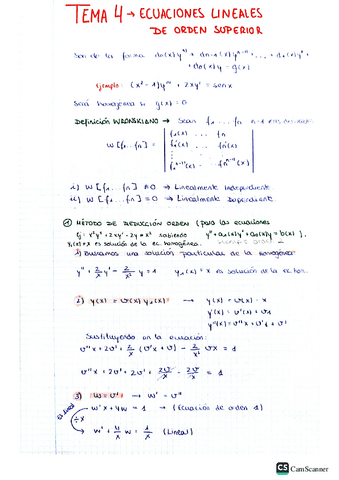 TEMA 4 → ECUACIONES LINEALES
DE ORDEN SUPERIOR
Son de la forma an(x)yⁿ⁾ + an-1(x)yⁿ⁻¹⁾ + ... + a2(x)y'' +
+ a0(x)y = g(x)
Ejemplo: (x² - 1)y''' + 2xy' = senx
Será homogénea si g(x) = 0
Definición WRONSKIANO → Sean f1 ... fn n-1
W [f1 ... fn] =
f1(x) ... fn
f1'(x) ... fn'(x)
f1ⁿ⁻¹⁾(x) ... fnⁿ⁻¹⁾(x)
i) W [f1 ... fn] ≠ 0 → Linealmente Independiente
ii) W [f1 ... fn] = 0 → Linealmente Dependiente.
① MÉTODO DE REDUCCIÓN ORDEN (para las ecuaciones
y'' + a1(x)y' + a0(x)y = b(x)
Ej: x²y'' + 2xy' - 2y = x² sabiendo
siempre orden 2
y1(x) = x es solución de la ec. homogénea.
1) Buscamos una solución particular de la homogénea
y'' + 2/x y' - 2/x² y = 1 y1(x) = x es solución de la ec. hom.
2) y(x) = v(x) y1(x) → y(x) = v(x) · x
y'(x) = v'(x) + v·1
y''(x) = v''x + v'1 + v'
Sustituyendo en la ecuación:
v''x + 2v' + 2/x (v'x + v) - 2/x² vx = 1
v''x + 2v' + 2v' + 2v/x - 2v/x = 1
3) w = v' → w' = v''
w'x + 4w = 1 → (Ecuación de orden 1)
÷x
w' + 4/x w = 1/x (Lineal)
CS CamScanner